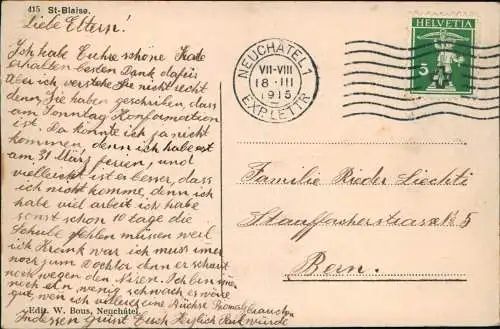 415 St-Blaise.
Liebe Eltern!
Ich habe Euhre schöne Karte
erhalten besten Dank dafür
Aber ich verstehe Sie nicht recht
denn Sie haben geschrieben, dass
am Sonntag Konformation
ist. Da könnte ich ja nicht
kommen, denn ich habe erst
am 31 März ferien, und
vielleicht ist er besser, dass
ich nicht komme, denn ich
habe viel arbeit ich habe
sonst schon 10 tage die
Schule fehlen müsen weil
ich Krank war ich muss imer
noch zum Docktor denn er schaut
noch wegen den Niren. Ich bin imer
noch ein wenig schwach es wäre
gut, wen ich villeicht eine Büchse
Indessen grüsst Euch Herzlich
Edit. W. Bous, Neuchâtel.
NEUCHÂTEL 1
VII-VIII
18. III
1915
EXP. LETTR.
HELVETIA
5
Familie Rieder Liechti
Stauffacherstrasse 5
Bern.